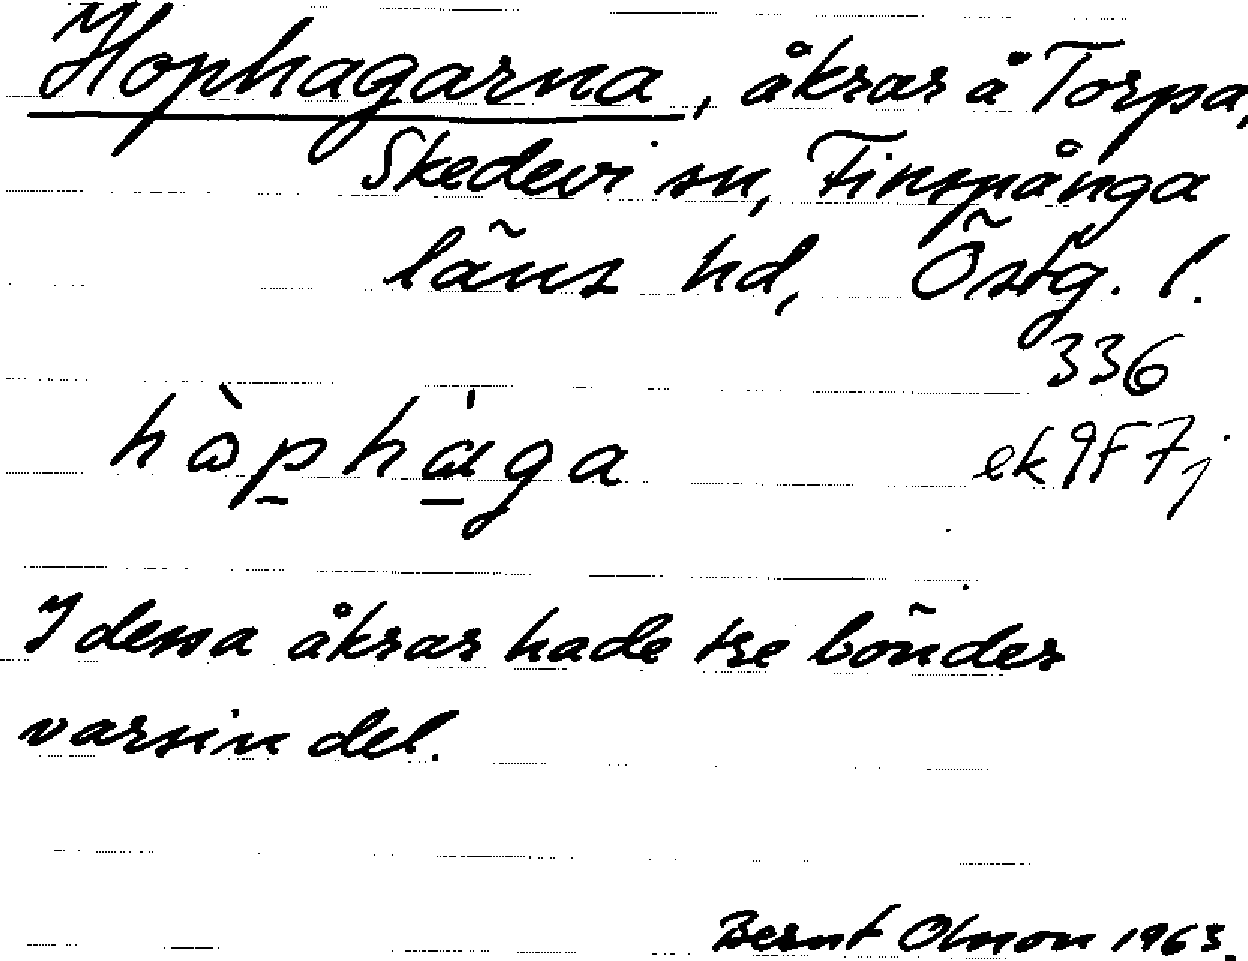 Hophagarna, åkrar å Torpa,
Skedevi sn, Finspånga
läns hd, Östg. l.
336
hòphàga
ek 9F7j
I dessa åkrar hade tre bönder
varsin del.
Bernt Olsson 1963.